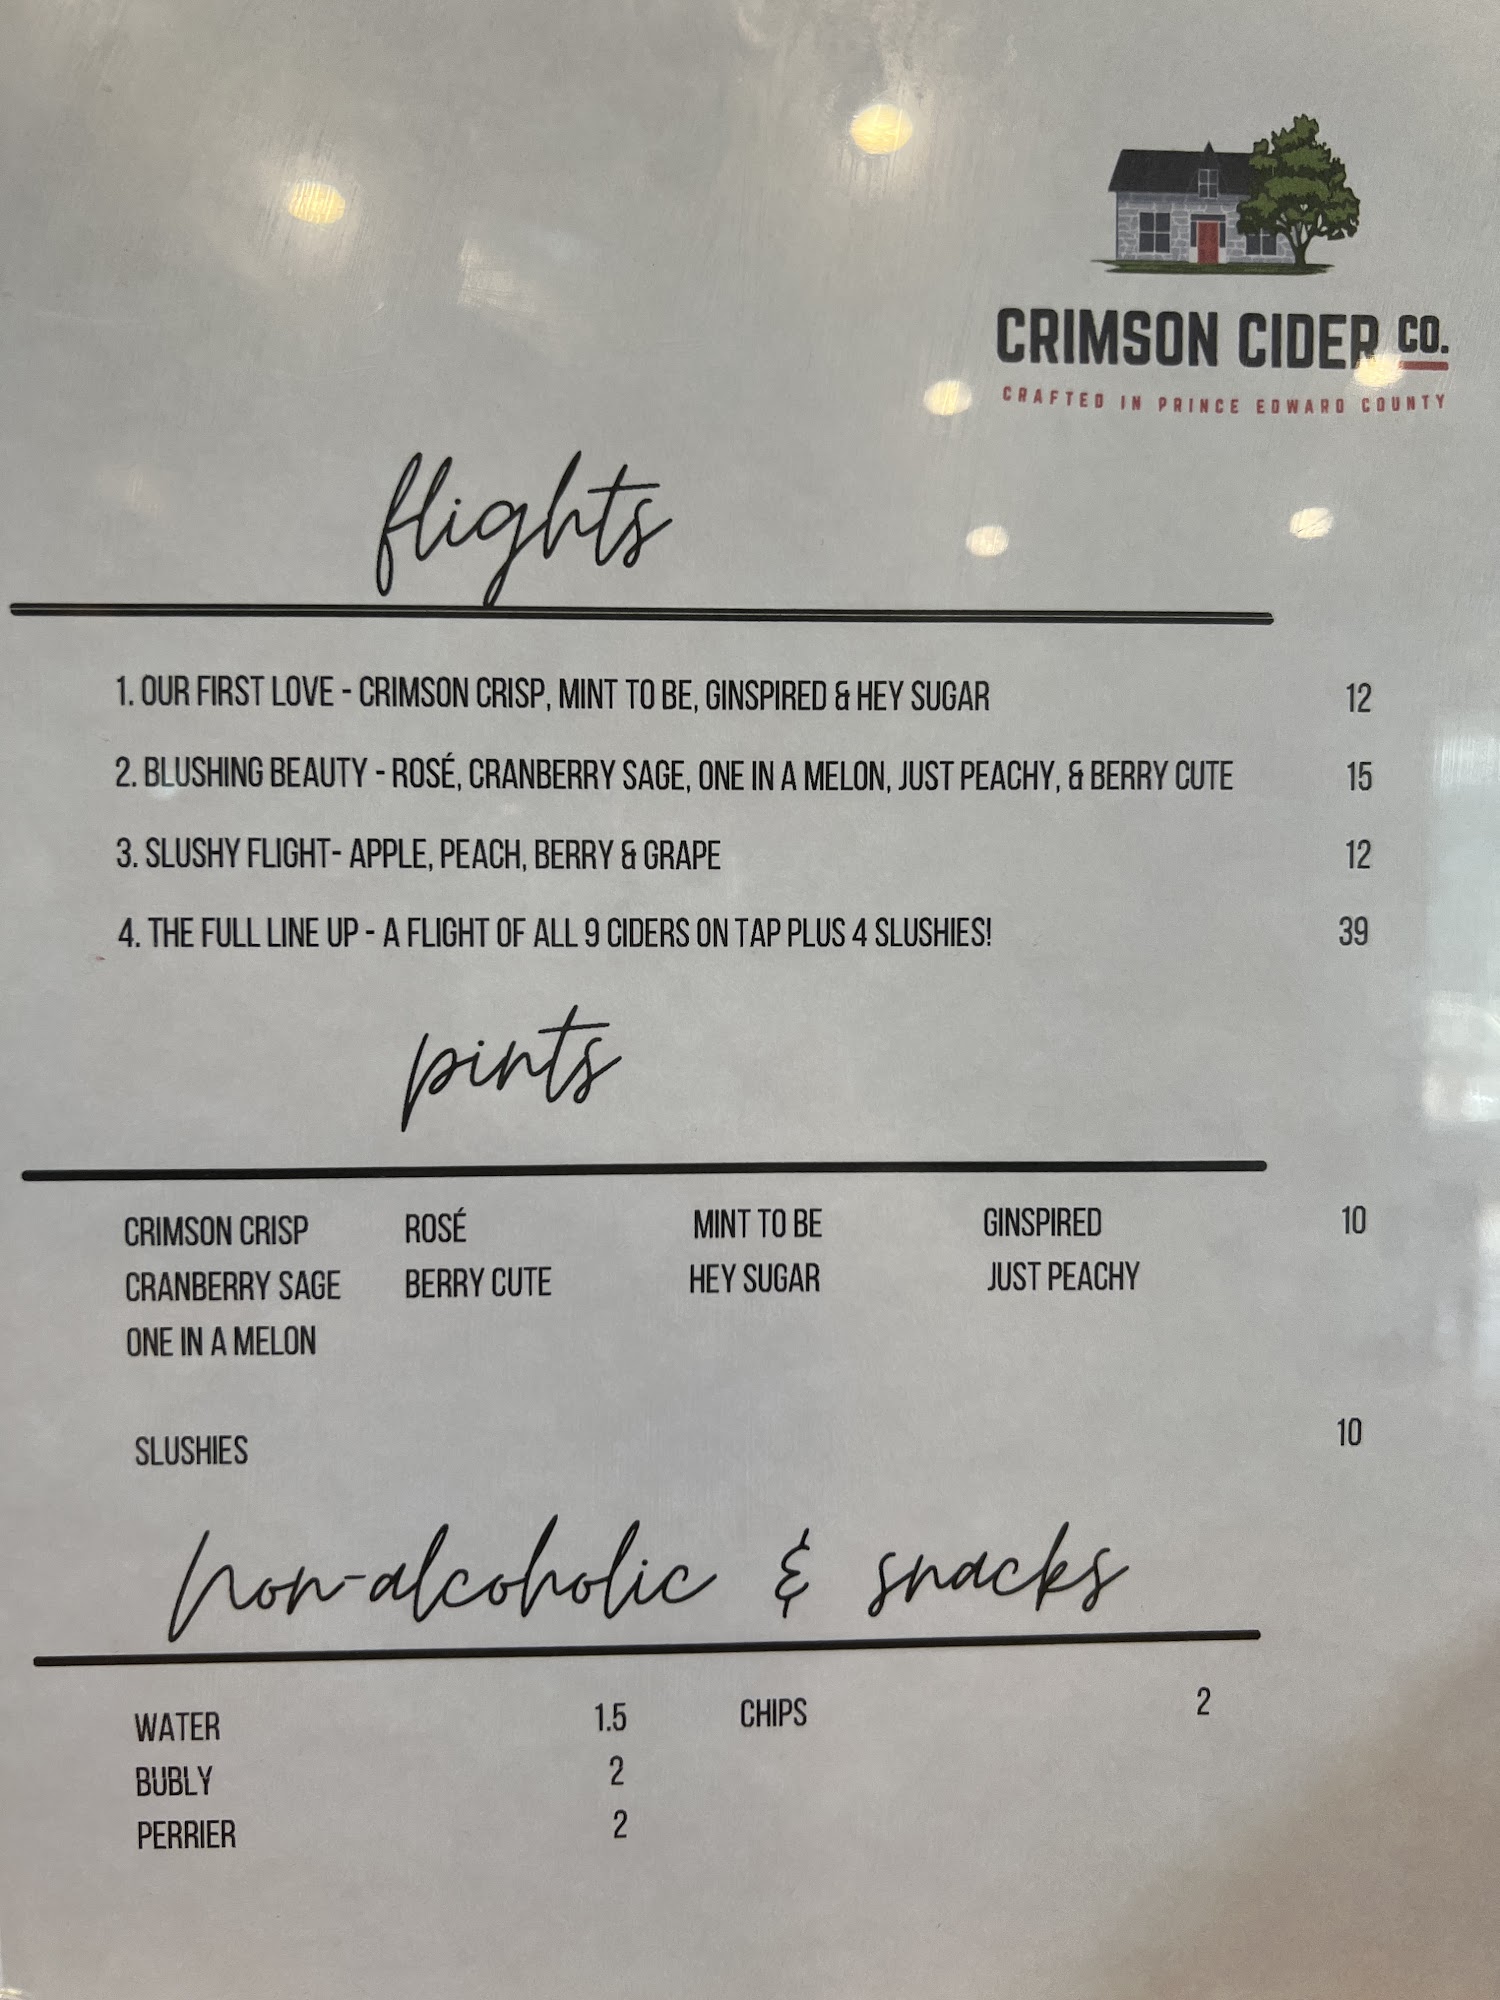 CRIMSON CIDER CO.
CRAFTED IN PRINCE EDWARD COUNTY
flights
1. OUR FIRST LOVE - CRIMSON CRISP, MINT TO BE, GINSPIRED & HEY SUGAR 12
2. BLUSHING BEAUTY - ROSÉ, CRANBERRY SAGE, ONE IN A MELON, JUST PEACHY, & BERRY CUTE 15
3. SLUSHY FLIGHT- APPLE, PEACH, BERRY & GRAPE 12
4. THE FULL LINE UP - A FLIGHT OF ALL 9 CIDERS ON TAP PLUS 4 SLUSHIES! 39
pints
CRIMSON CRISP ROSÉ MINT TO BE GINSPIRED 10
CRANBERRY SAGE BERRY CUTE HEY SUGAR JUST PEACHY
ONE IN A MELON
SLUSHIES 10
Non-alcoholic & snacks
WATER 1.5 CHIPS 2
BUBLY 2
PERRIER 2